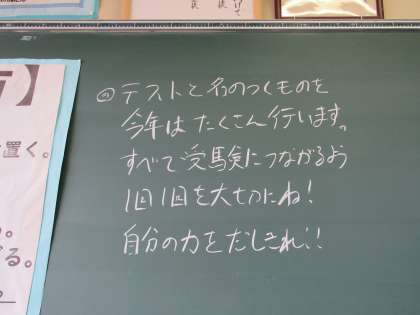 】
置く。
る。
◎テストと名のつくものを
今年はたくさん行います。
すべて受験につながるよう
1回1回を大切にね!
自分の力をだしきれ!!